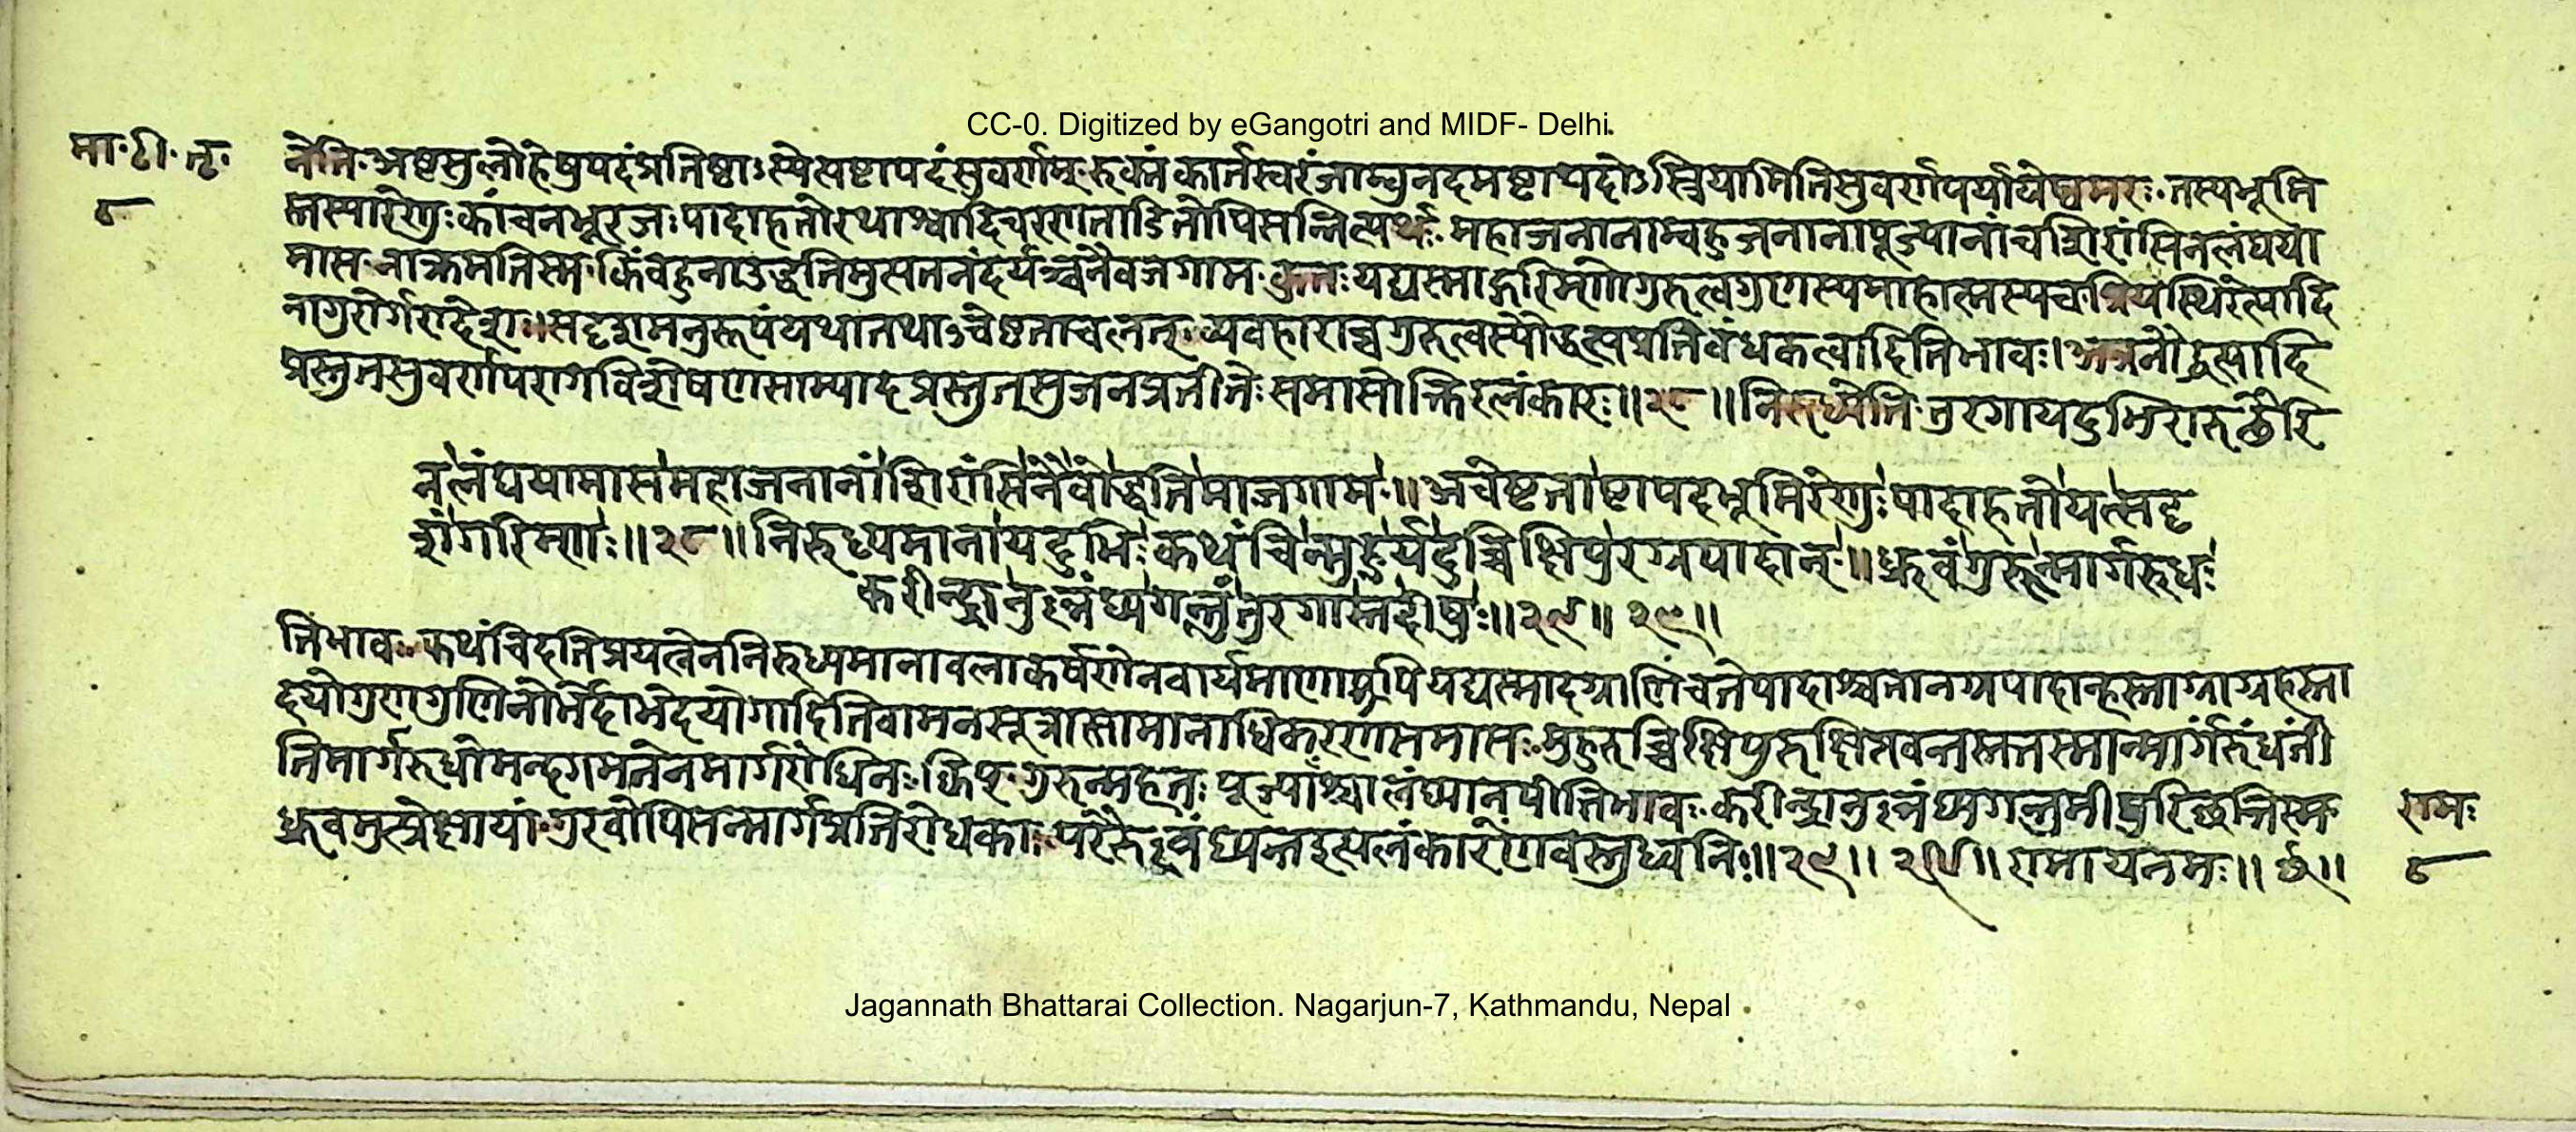 CC-0. Digitized by eGangotri and MIDF- Delhi.
मा. टी. तृ.
८
नेति. अष्टसु लोहेषु पदं प्रतिष्ठाऽस्येत्यष्टापदं सुवर्णम्. रुक्मं कार्तस्वरं जाम्बुनदमष्टापदोऽस्त्रियामिति सुवर्णपर्यायेष्वमरः. तस्य भूमि
स्तस्या रेणुः कांचनभूरजः पादाहतो रथाश्वादिचरणताडितोपि सन्नित्यर्थः. महाजनानाम्बहुजनानां पूज्यानां च शिरांसि न लंघया
मास. नाक्रमतिस्म. किं बहुना उद्धतिमु नैव जगाम. कुतः यद्यस्माद्गरिम्णो गुरुत्वगुणस्य माहात्म्यस्य च प्रियस्थिरेत्यादि
ना गुरोर्गरादेशः ॥ सदृशमनुरूपं यथा तथाऽचेष्टताचलत् व्यवहाराच्च गुरुत्वस्यौद्धत्यप्रतिबंधकत्वादिति भावः। अत्र
प्रस्तुतसुवर्णपरागविशेषणसाम्यादप्रस्तुतसुजनप्रतीतेः समासोक्तिरलंकारः ॥ २८ ॥ निरुध्येति. तुरगा यदुभिरारूढैरि
न लंघयामास महाजनानां शिरांसि नैवोद्धतिमाजगाम ॥ अचेष्टताष्टापदभूमिरेणुः पादाहतो यत्सदृ
शं गरिम्णः ॥ २८ ॥ निरुध्यमाना यदुभिः कथंचिन्मुहुर्यदुच्चिक्षिपुरग्रपादान् ॥ ध्रुवं गुरून्मार्गरुधः
करीन्द्रानुल्लंघ्य गन्तुं तुरगास्तदीषुः ॥ २९ ॥ २९ ॥
ति भावः. कथंचिदतिप्रयत्नेन निरुध्यमाना वलाकर्षणेन वार्यमाणा अपि यद्यस्मादग्राणि च ते पादाश्च तानग्रपादान्हस्ताग्राग्रहस्ता
दयो गुणगुणिनोर्भेदाभेदयोगादिति वामनसूत्रात्सामानाधिकरण्यं समासः. मुहुरुच्चिक्षिपुरुत्क्षिप्तवन्तस्तत्तस्मान्मार्गं रुंधंती
ति मार्गरुधो मन्दगमनेन मार्गरोधिनः. क्विप्. गुरून्महतः पूज्यांश्चालंघ्यानपीति भावः. करीन्द्रानुल्लंघ्य गन्तुमीषुरिच्छन्तिस्म
ध्रुवमुत्प्रेक्षायां. गुरवोपि सन्मार्गप्रतिरोधकाः परैरुल्लंघ्यन्त इत्यलंकारेण वस्तुध्वनिः ॥ २९ ॥ २९ ॥ रामाय नमः ॥ ६ ॥
रामः
८
Jagannath Bhattarai Collection. Nagarjun-7, Kathmandu, Nepal